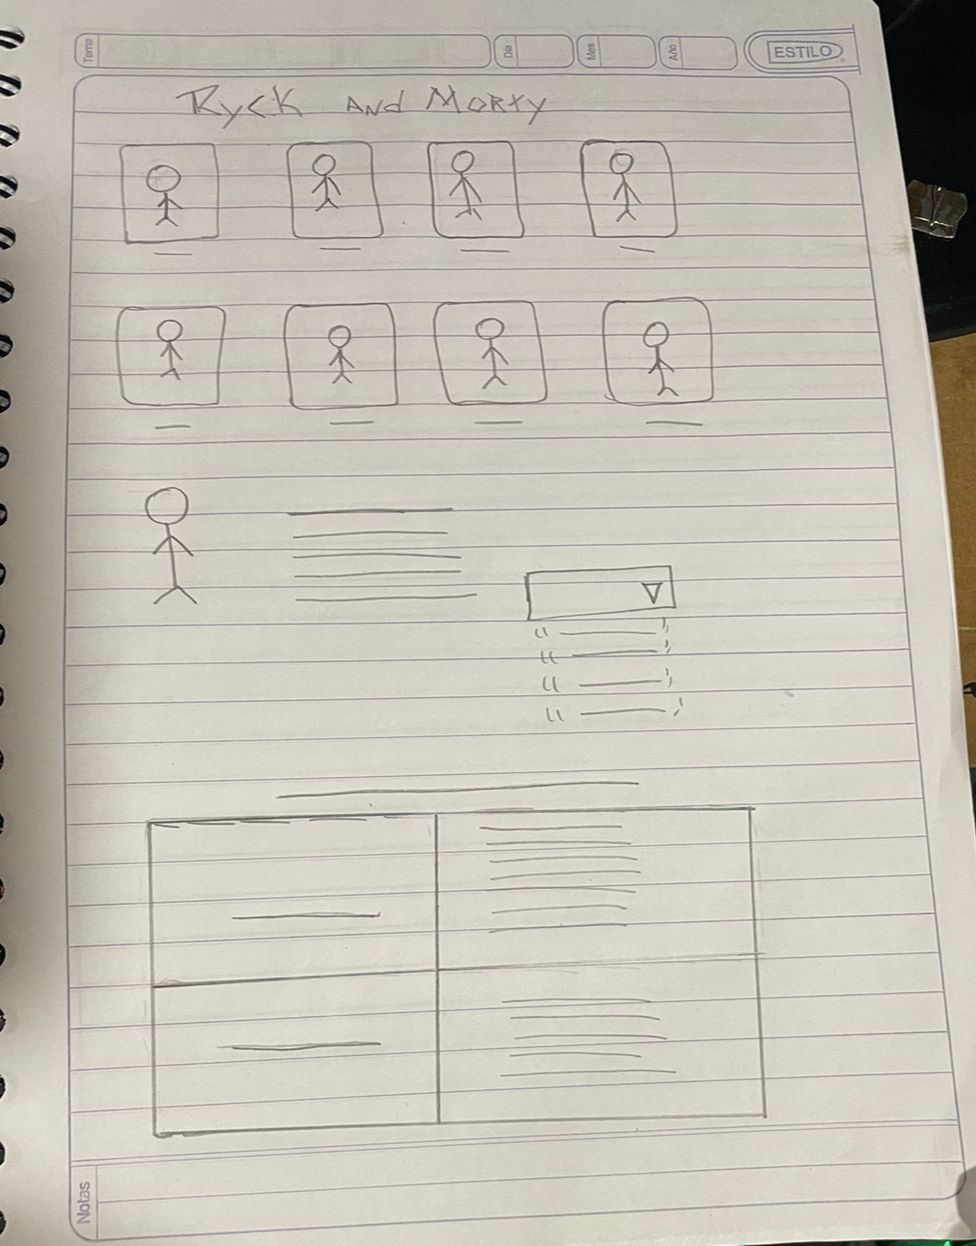 Tema Día Mes Año ESTILO
RYCK AND MORTY
Notas